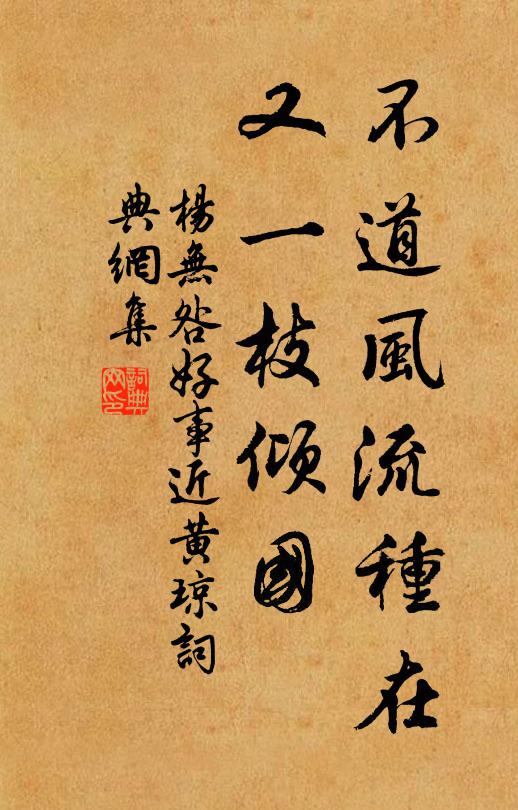 不道風流種在
又一枝傾國
楊無咎好事近黃琼詞
典網集
詞典
網印